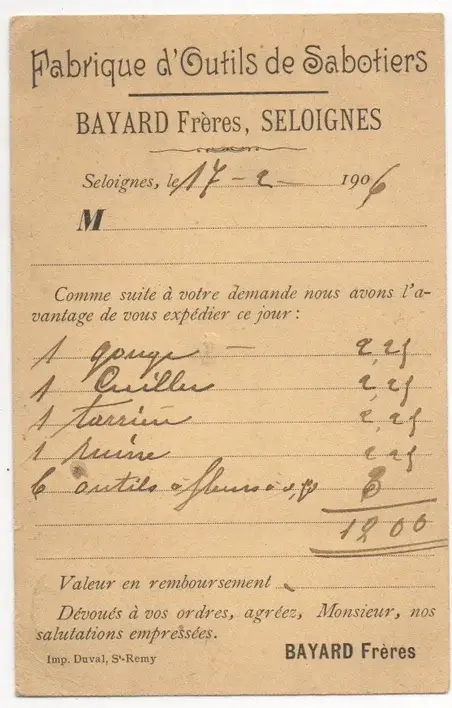 Fabrique d'Outils de Sabotiers
BAYARD Frères, SELOIGNES
Seloignes, le 17 - 2 - 1906
M
Comme suite à votre demande nous avons l'a-
vantage de vous expédier ce jour :
1 gouge - 2,25
1 Cuiller 2,25
1 tarrière 2,25
1 ruine 2,25
6 outils à fleurs à 3
1200
Valeur en remboursement
Dévoués à vos ordres, agréez, Monsieur, nos
salutations empressées.
BAYARD Frères
Imp. Duval, St-Remy